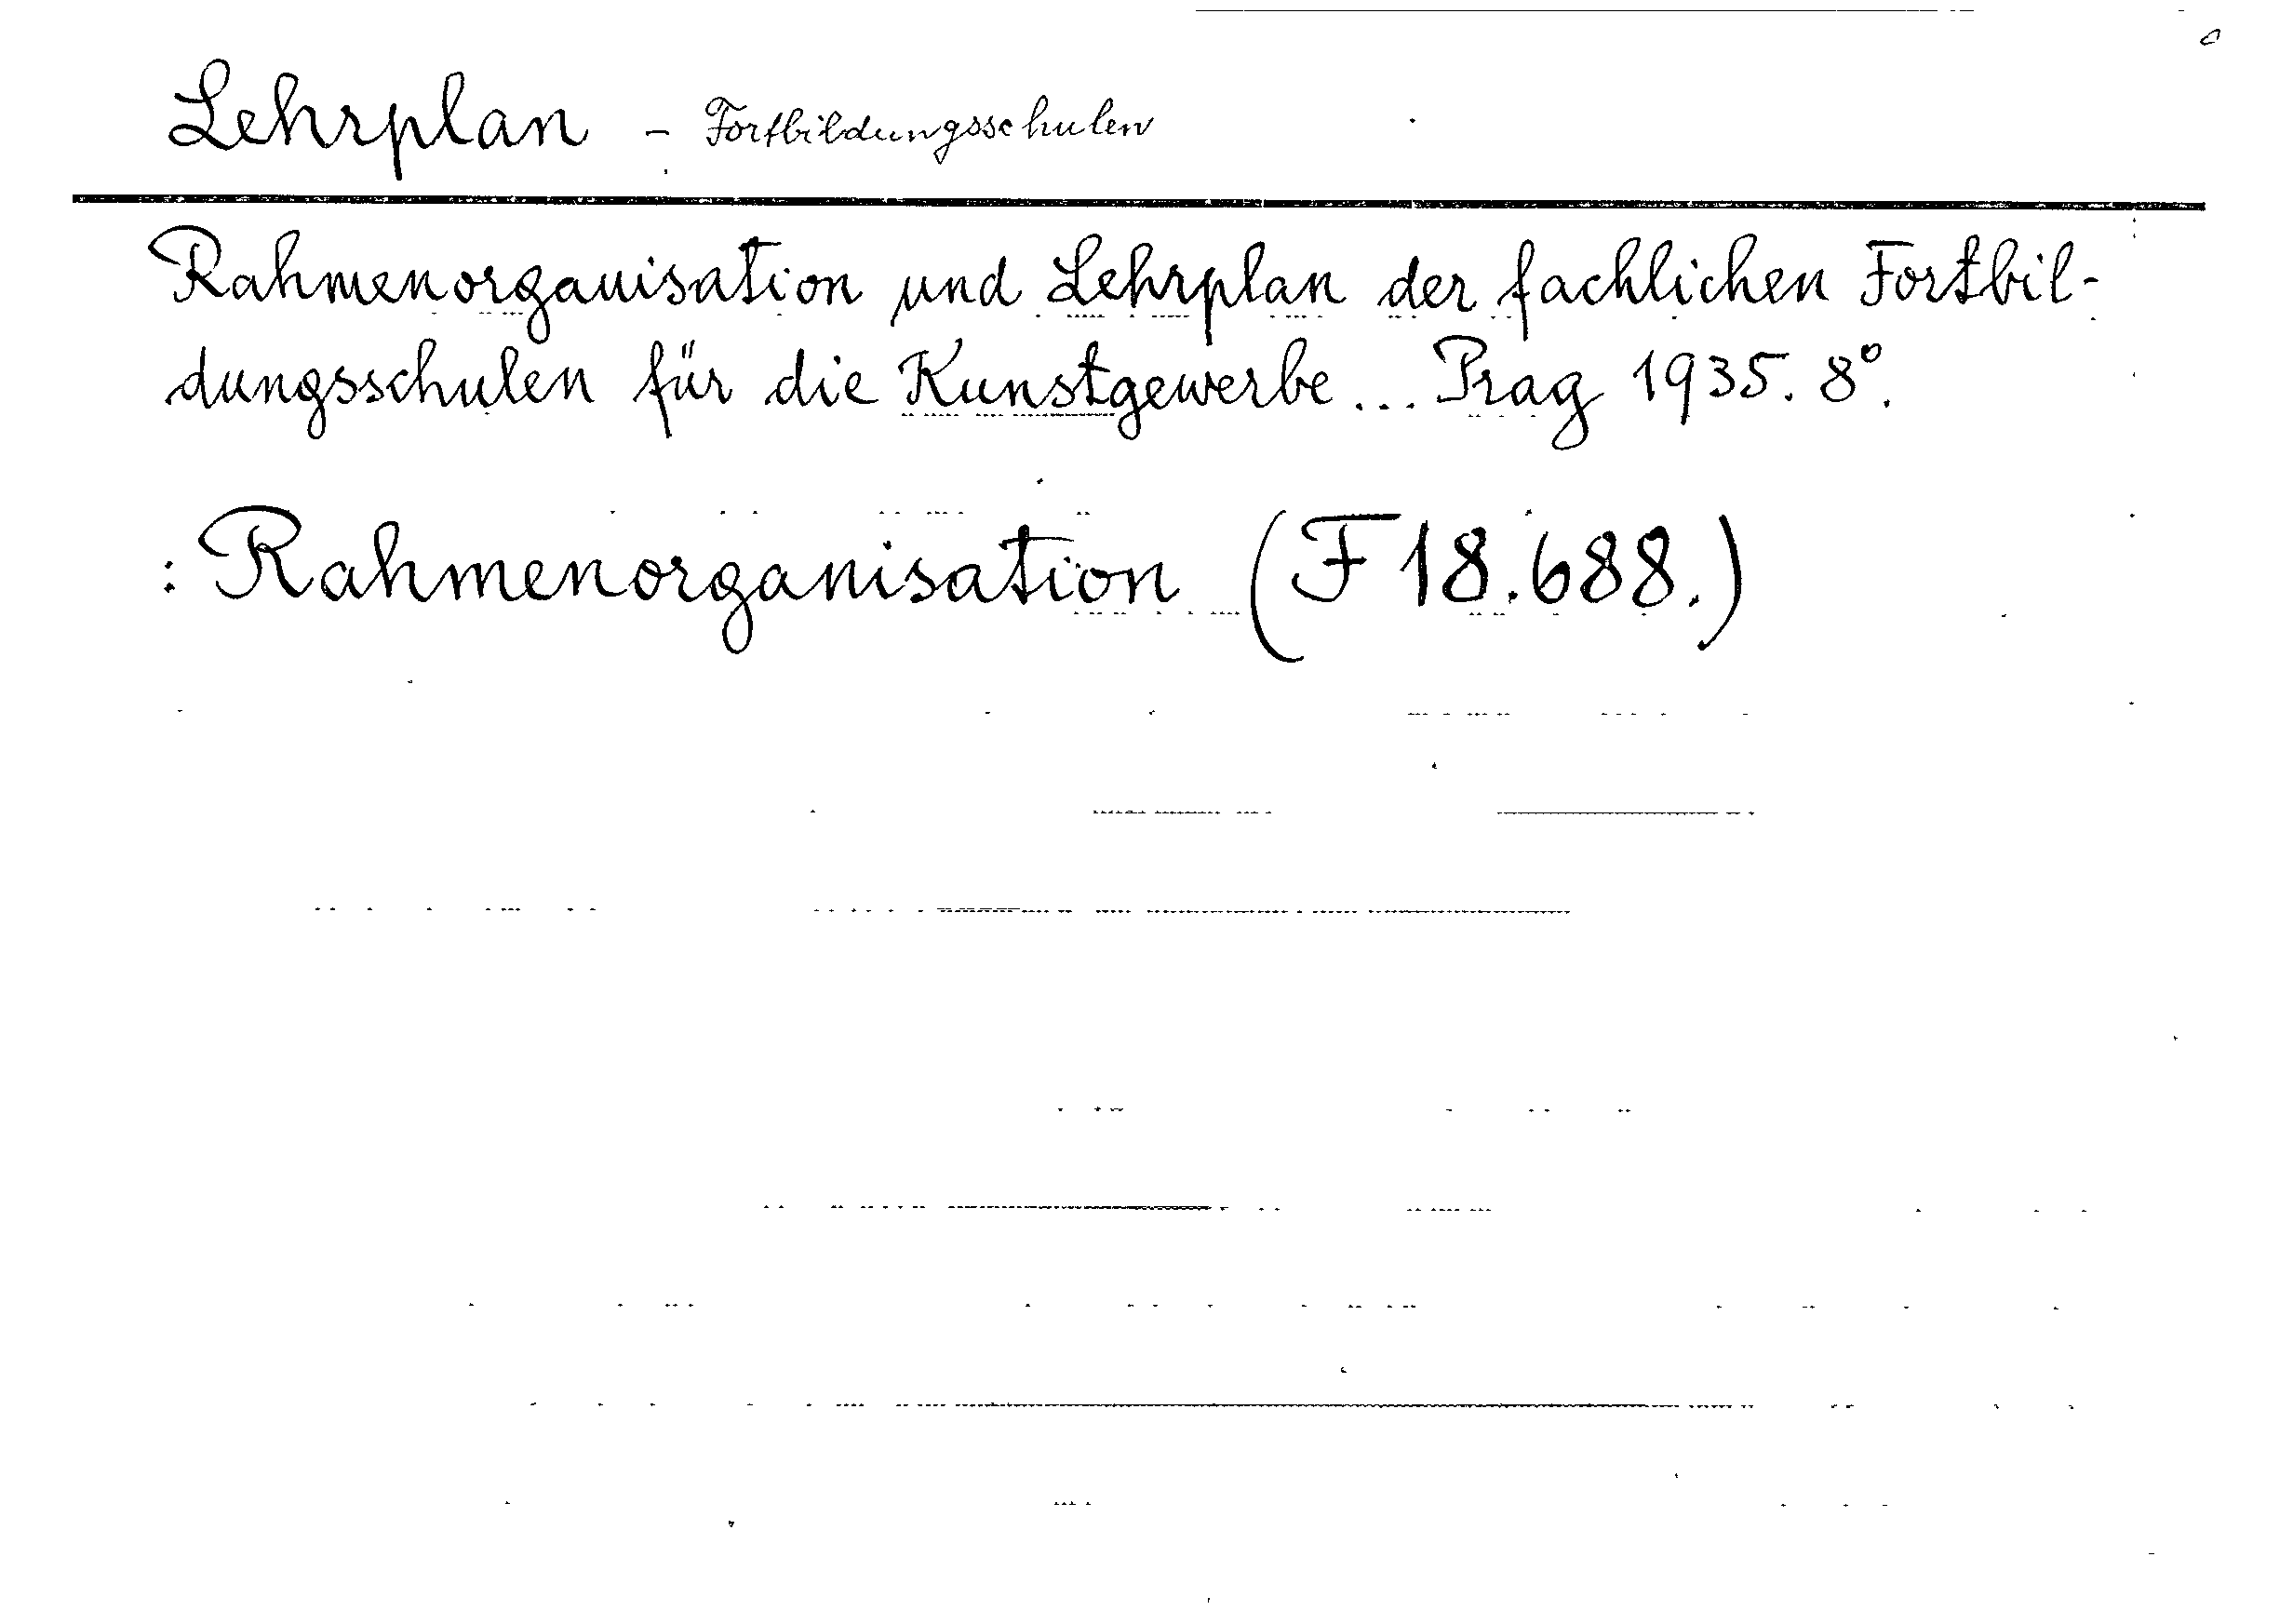 Lehrplan - Fortbildungsschulen
Rahmenorganisation und Lehrplan der fachlichen Fortbil-
dungsschulen für die Kunstgewerbe... Prag 1935. 8°.
: Rahmenorganisation (F 18.688.)